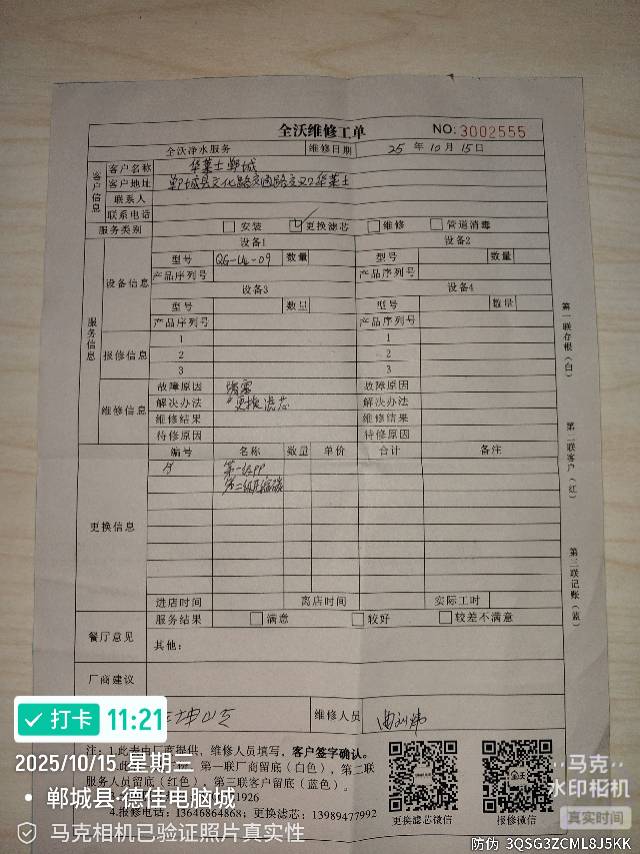 全沃维修工单 NO:3002555
全沃净水服务 维修日期 25 年 10 月 15 日
客户信息
客户名称 华莱士郸城
客户地址 郸城县文化路交通路交叉口华莱士
联系人
联系电话
服务类别 安装 更换滤芯 维修 管道消毒
服务信息
设备信息
设备1 设备2
型号 QG-UL-09 数量 型号 数量
产品序列号 产品序列号
设备3 设备4
型号 数量 型号 数量
产品序列号 产品序列号
报修信息
1 1
2 2
3 3
维修信息
故障原因 堵塞 故障原因
解决办法 更换滤芯 解决办法
维修结果 维修结果
待修原因 待修原因
更换信息
编号 名称 数量 单价 合计 备注
第一级PP
第二级压缩碳
进店时间 离店时间 实际工时
餐厅意见
服务结果 满意 较好 较差不满意
其他:
厂商建议
维修人员
注:1.此表由厂商提供，维修人员填写，客户签字确认。
第一联厂商留底（白色），第二联
服务人员留底（红色），第三联客户留底（蓝色）。
1926
4.报修电话:13646864868；更换滤芯:13989477992
更换滤芯微信 报修微信
第一联存根（白）
第二联客户（红）
第三联记账（蓝）
打卡 11:21
2025/10/15 星期三
郸城县·德佳电脑城
马克相机已验证照片真实性
马克
水印相机
真实时间
防伪 3QSG3ZCML8J5KK